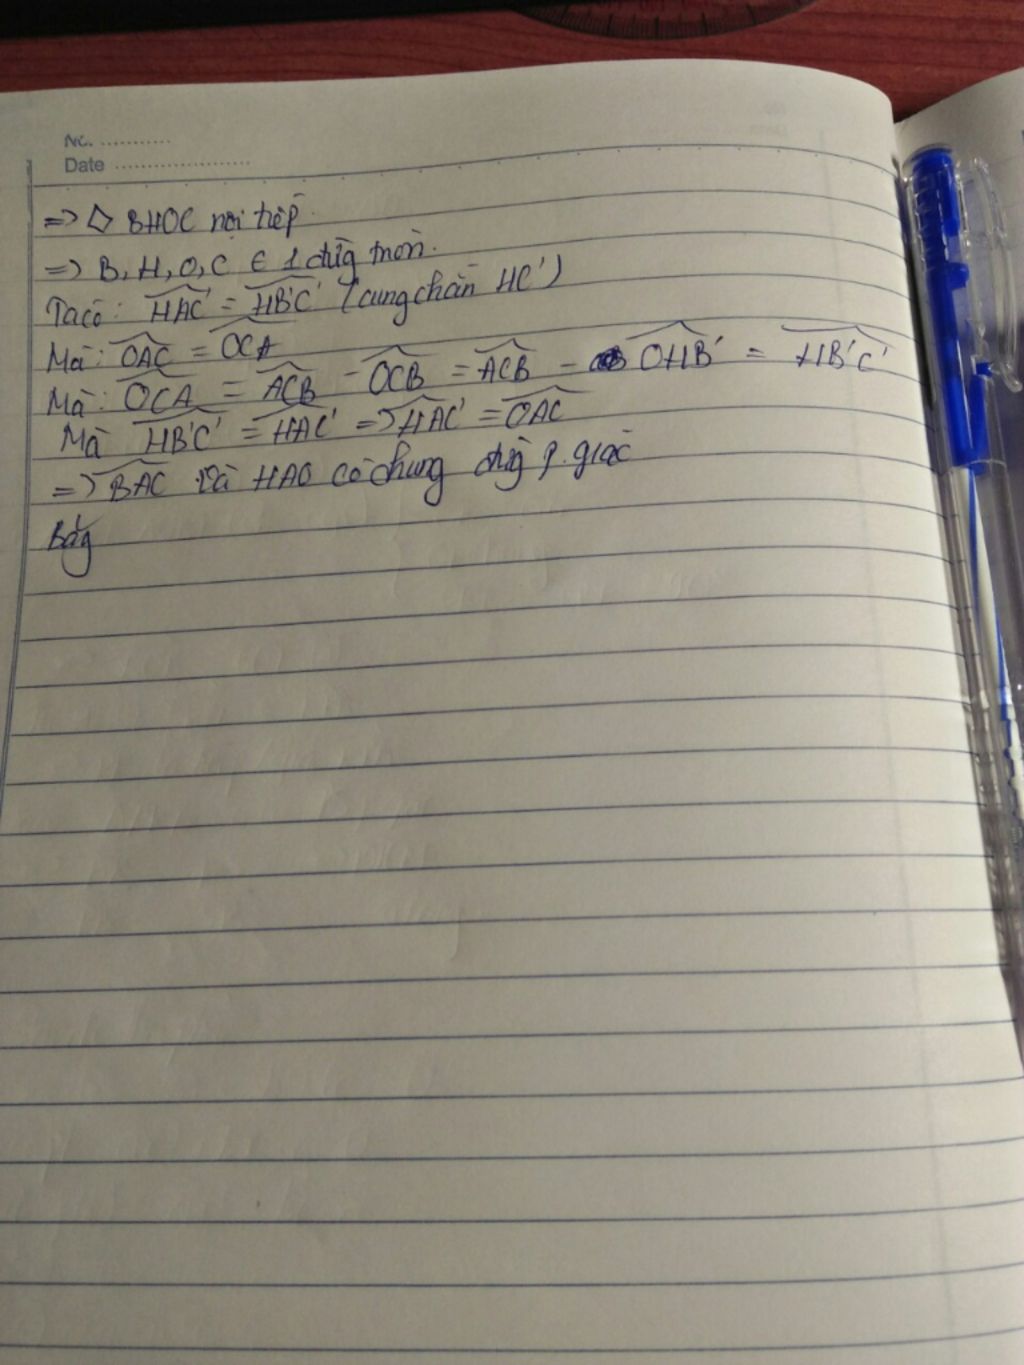 No. ............
Date ........................
=> ◇ BHOC nội tiếp.
=> B, H, O, C ∈ 1 đường tròn.
Ta có: HAC' = HB'C' (cùng chắn HC')
Mà: OAC = OCA
Mà: OCA = ACB - OCB = ACB - OHB' = HB'C'
Mà HB'C' = HAC' => HAC' = OAC
=> BAC và HAO có chung đường p. giác